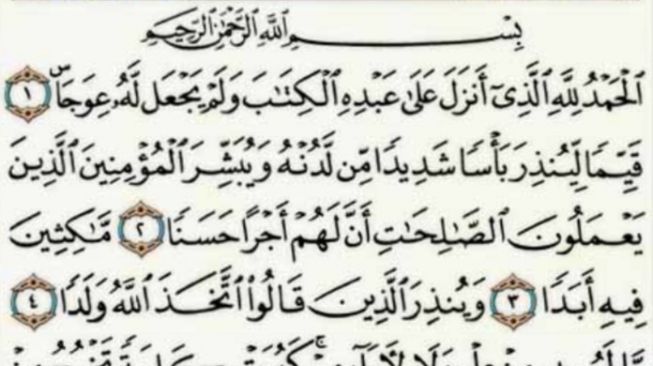 بِسْمِ اللَّهِ الرَّحْمَٰنِ الرَّحِيمِ
الْحَمْدُ لِلَّهِ الَّذِي أَنزَلَ عَلَىٰ عَبْدِهِ الْكِتَابَ وَلَمْ يَجْعَل لَّهُ عِوَجَاۜ ١
قَيِّمًا لِّيُنذِرَ بَأْسًا شَدِيدًا مِّن لَّدُنْهُ وَيُبَشِّرَ الْمُؤْمِنِينَ الَّذِينَ
يَعْمَلُونَ الصَّالِحَاتِ أَنَّ لَهُمْ أَجْرًا حَسَنًا ٢ مَّاكِثِينَ
فِيهِ أَبَدًا ٣ وَيُنذِرَ الَّذِينَ قَالُوا اتَّخَذَ اللَّهُ وَلَدًا ٤